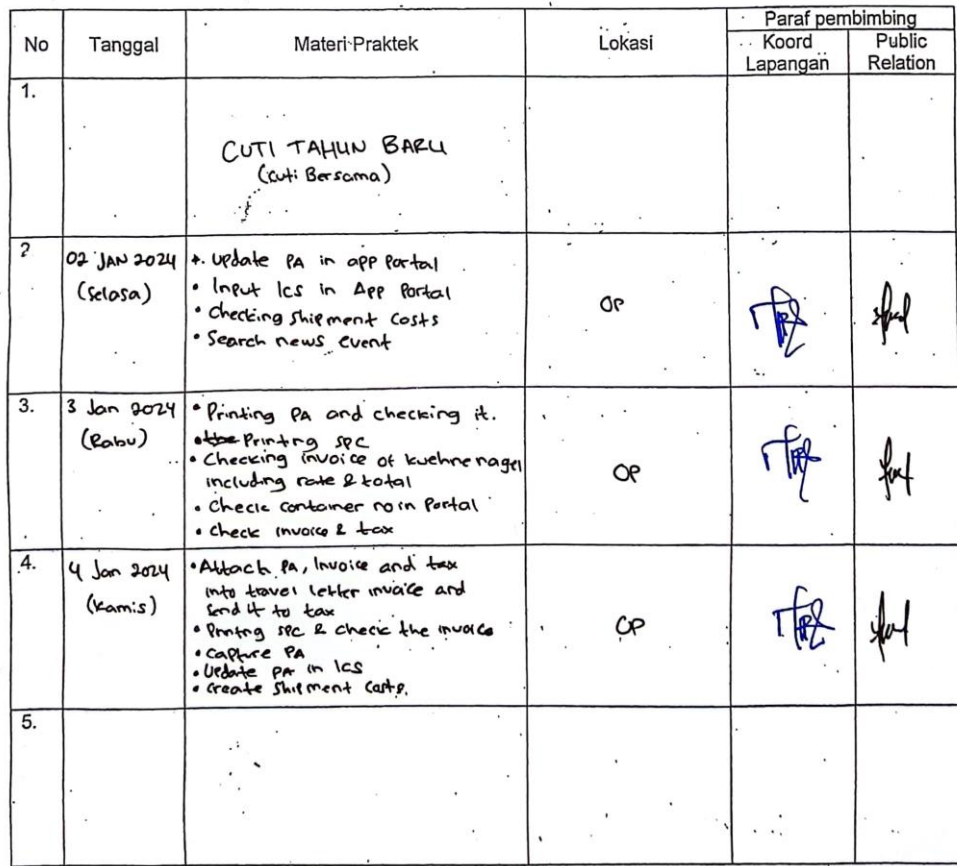 No Tanggal Materi Praktek Lokasi Paraf pembimbing
Koord Lapangan Public Relation
1.
CUTI TAHUN BARU
(Cuti Bersama)
2 02 JAN 2024 (Selasa)
• Update PA in app Portal
• Input Ics in App Portal
• Checking Shipment Costs
• Search news event
OP
3. 3 Jan 2024 (Rabu)
• Printing PA and checking it.
• the Printing SPC
• Checking invoice of kuehne nagel
including rate & total
• Check container no in Portal
• Check invoice & tax
OP
4. 4 Jan 2024 (Kamis)
• Attach PA, Invoice and tax
into travel letter invoice and
Send it to tax
• Printing SPC & check the invoice
• Capture PA
• Update PA in Ics
• Create Shipment Costs.
OP
5.